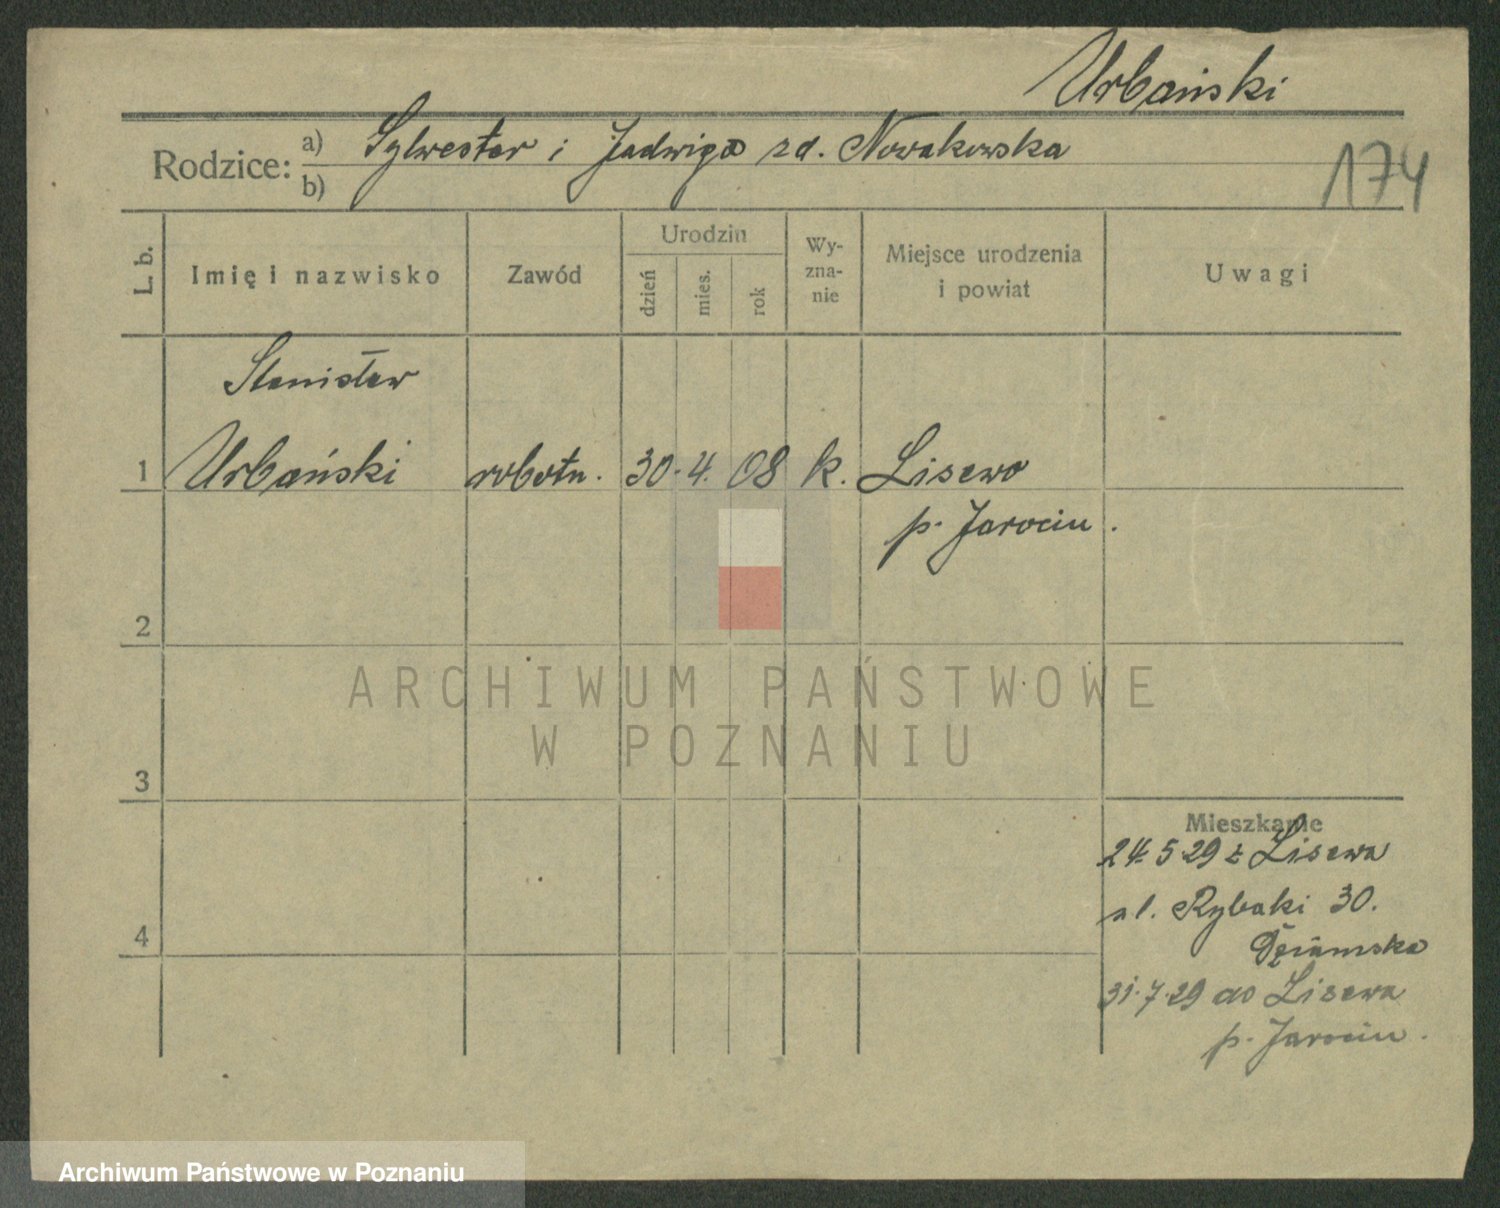 Urbański
174
Rodzice: a) Sylwester i Jadwiga zd. Nowakowska
b)
L. b.
Imię i nazwisko
Zawód
Urodzin
dzień
mies.
rok
Wy-
zna-
nie
Miejsce urodzenia
i powiat
Uwagi
Stanisław
1 Urbański robotn. 30. 4. 08 k. Lisewo
p. Jarocin.
2
3
4
Mieszkanie
24.5.29 z Lisewa
ul. Rybaki 30.
31.7.29 do Lisewa
p. Jarocin.
ARCHIWUM PAŃSTWOWE
W POZNANIU
Archiwum Państwowe w Poznaniu